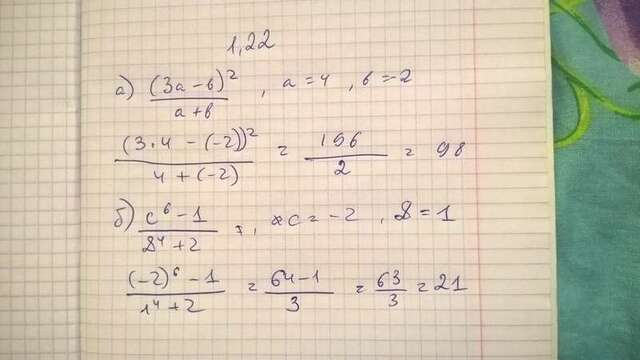 1,22
а) (3а - в)² / а + в , а = 4 , в = -2
(3·4 - (-2))² / 4 + (-2) = 196 / 2 = 98
б) с⁶ - 1 / 8⁴ + 2 , с = -2 , 8 = 1
(-2)⁶ - 1 / 1⁴ + 2 = 64 - 1 / 3 = 63 / 3 = 21